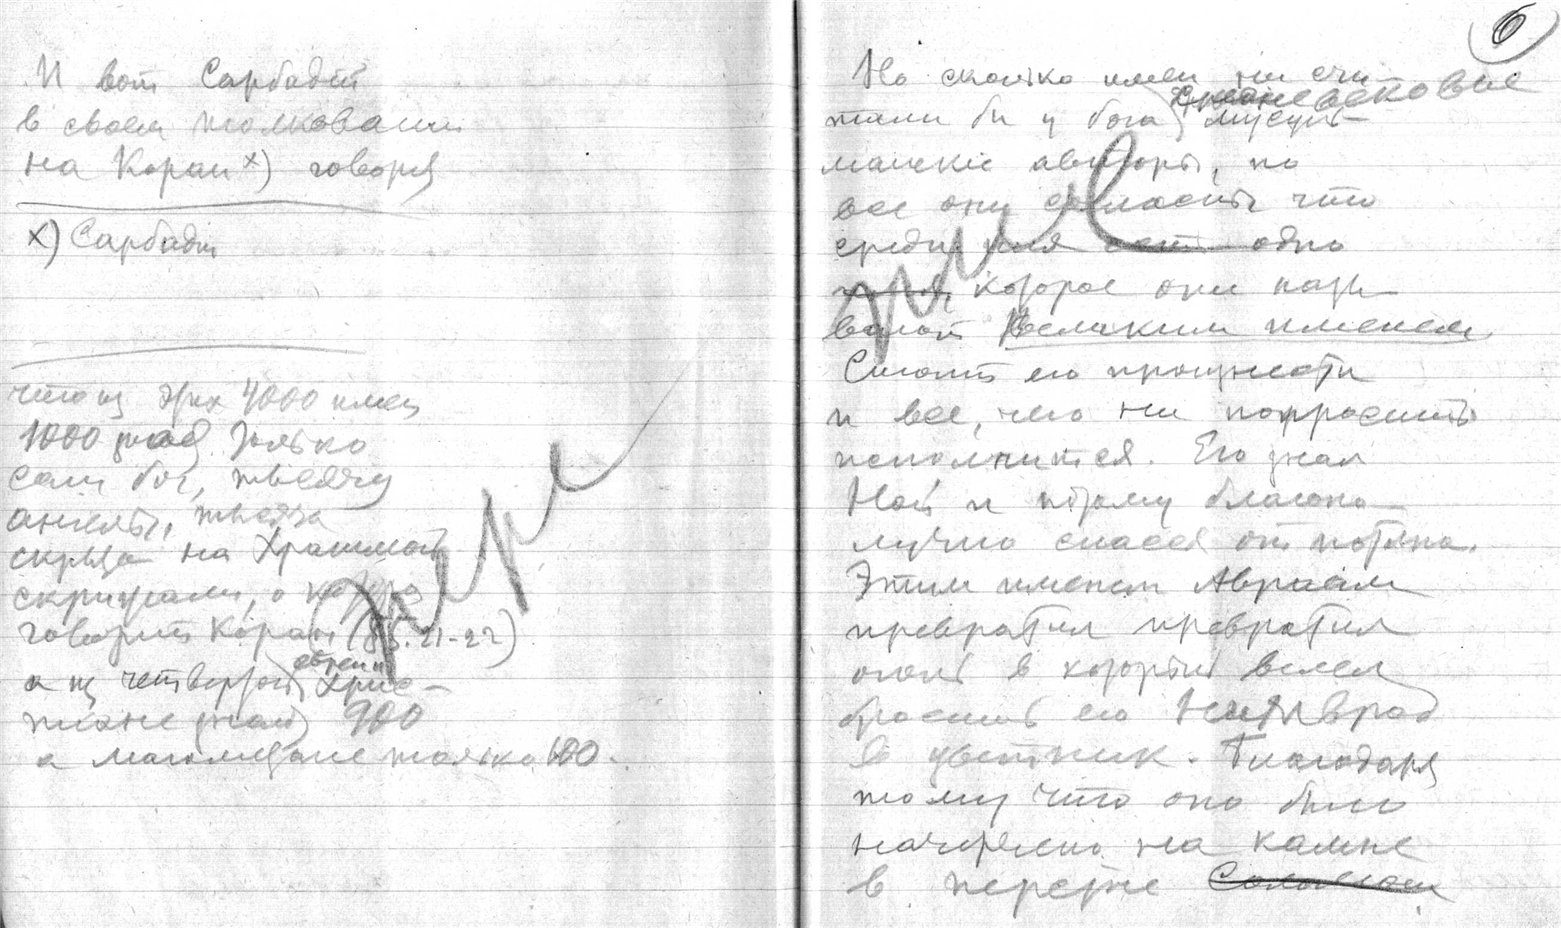 И вот Сарбадт
в своем толковании
на Коран х) говоря
х) Сарбадт
что из этих 4000 имен
1000 знает только
сам бог, тысячу
ангелы, тысяча
скрыта на
скрижали, о которо
говорит Коран (85. 21-22)
а из четвертой евреи Хрис-
тиане знают 900
а магометане только 100.
6
Но сколько имен ни счи-
тали бы у бога средневековые мусуль-
манские авторы, но
все они согласны что
среди них есть одно
имя, которое они назы-
вают Великим именем
Стоит его произнести
и все, чего ни попросить
исполнится. Его знал
Ной и потому благопо-
лучно спасся от потопа.
Этим именем Авраам
превратил превратил
огонь в который велел
бросить его Нимврод
в цветник. Благодаря
тому что оно было
начертано на камне
в перстне Соломона